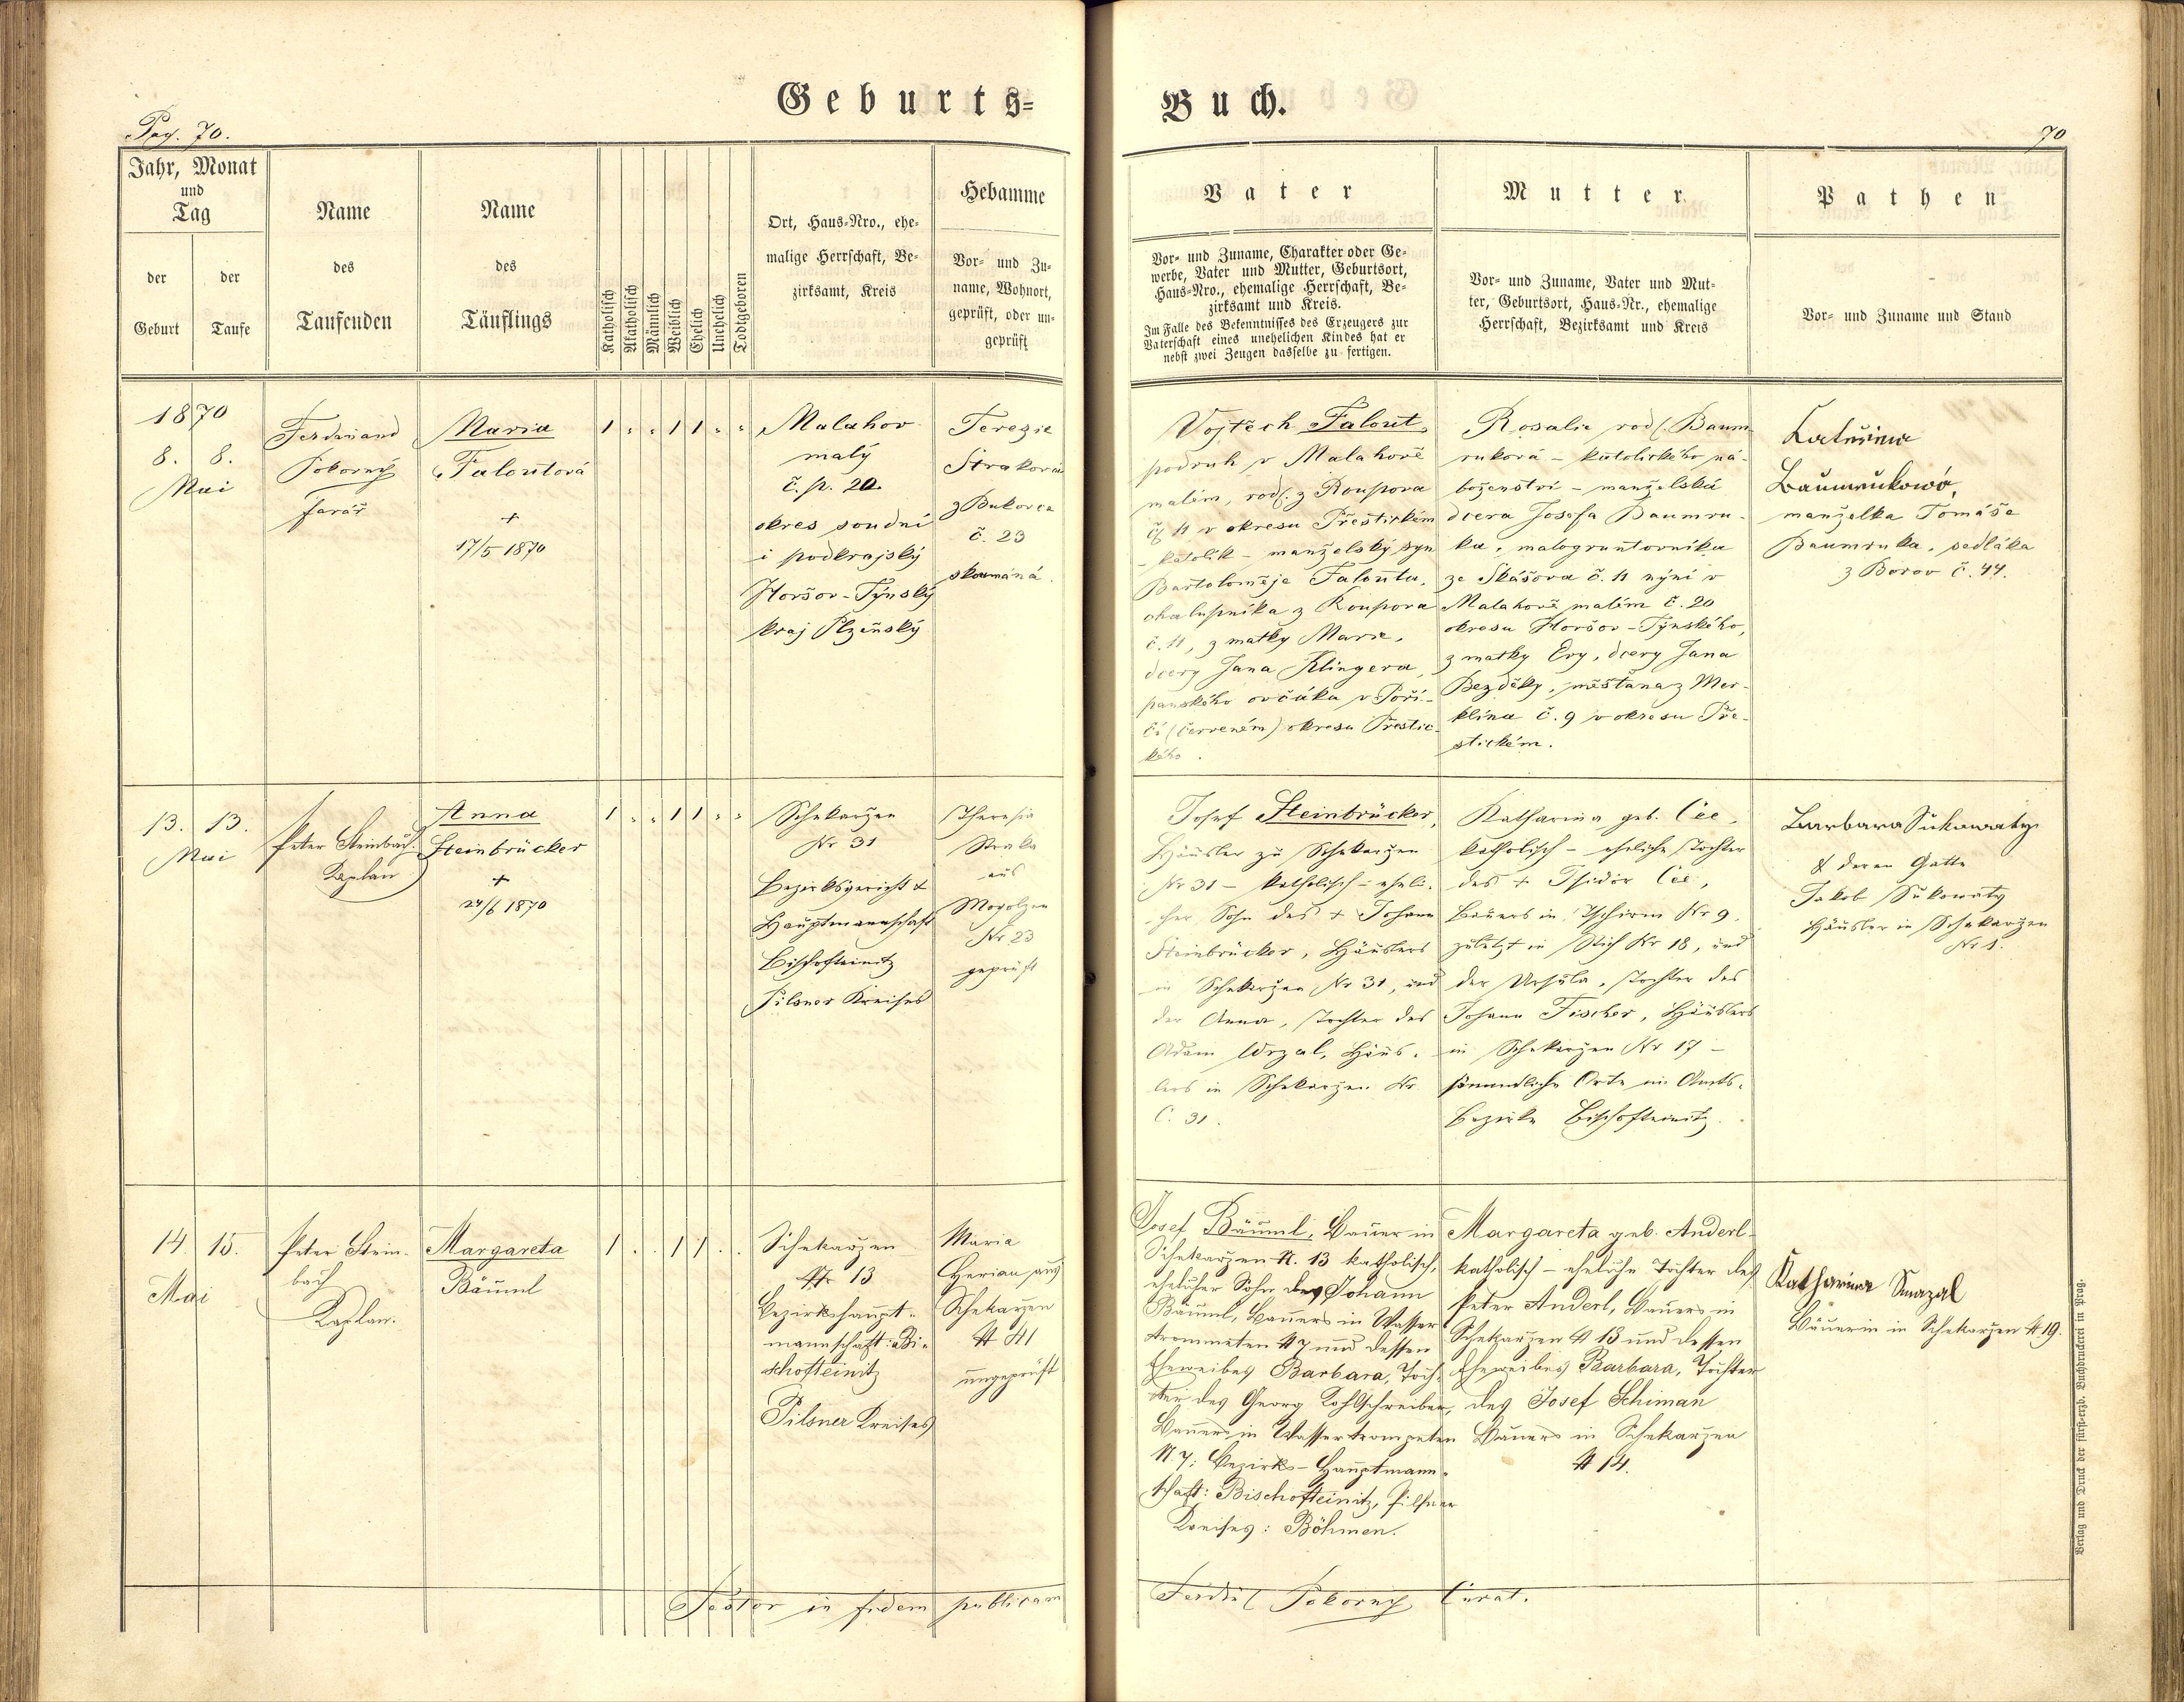 Geburts=
Buch.
Pag. 70.
70
Jahr, Monat
und
Tag
der
Geburt
der
Taufe
Name
des
Taufenden
Name
des
Täuflings
Katholisch
Akatholisch
Männlich
Weiblich
Ehelich
Unehelich
Todtgeboren
Ort, Haus=Nro., ehe=
malige Herrschaft, Be=
zirksamt, Kreis
Hebamme
Vor= und Zu=
name, Wohnort,
geprüft, oder un=
geprüft
Vater
Vor= und Zuname, Charakter oder Ge=
werbe, Vater und Mutter, Geburtsort,
Haus=Nro., ehemalige Herrschaft, Be=
zirksamt und Kreis.
Im Falle des Bekenntnisses des Erzeugers zur
Vaterschaft eines unehelichen Kindes hat er
nebst zwei Zeugen dasselbe zu fertigen.
Mutter
Vor= und Zuname, Vater und Mut=
ter, Geburtsort, Haus=Nr., ehemalige
Herrschaft, Bezirksamt und Kreis
Pathen
Vor= und Zuname und Stand
1870
8. 8.
Mai
Ferdinand
Pokorný
farář
Maria
Faloutová
+
17/5 1870
1 " " 1 1 " "
Malahov
malý
č. p. 20
okres soudní
i podkrajský
Horšov-Týnský
kraj Plzeňský
Terezie
Straková
z Bukovce
č. 23
zkoumaná.
Vojtěch Falout,
podruh v Malahově
malém, rod. z Roupova
č. 11 v okresu Přestickém
- katolík - manželský syn
Bartoloměje Falouta,
chalupníka z Roupova
č. 11, z matky Marie,
dcery Jana Klingera,
panského ovčáka v Poří-
čí (červeném) okresu Přestic-
kého.
Rosalie rod. Baum-
ruková - katolického ná-
boženství - manželská
dcera Josefa Baumru-
ka, malogruntovníka
ze Skášova č. 11 nýní v
Malahově malém č. 20
okresu Horšov-Týnského,
z matky Evy, dcery Jana
Bezděky, měštana z Mer-
klína č. 9 v okresu Pře-
stickém.
Baumrukowá,
manželka Tomáše
Baumruka, sedláka
z Borov č. 44.
13. 13.
Mai
Peter Steinbach
Kaplan
Anna
Steinbrücker
+
24/6 1870
1 " " 1 1 " "
Schekarzen
Nr 31
Bezirksgericht &
Hauptmannschaft
Bischofteinitz
Pilsner Kreises
Theresia
Straka
aus
Mogolzen
Nr 23
geprüft
Josef Steinbrücker,
Häusler zu Schekarzen
Nr 31 - katholisch - eheli-
cher Sohn des + Johann
Steinbrücker, Häuslers
in Schekarzen Nr 31, und
der Anna, Tochter des
Adam Wrzal, Häus-
lers in Schekarzen Nr
C. 31.
Katharina geb. Cće,
katholisch - eheliche Tochter
des + Isidor Cće,
Bauers in Tschirm Nr 9,
zuletzt in Stich Nr 18, und
der Ursula, Tochter des
Johann Fischer, Häuslers
in Schekarzen Nr 17 -
sämmtliche Orte im Amts-
bezirke Bischofteinitz.
Barbara Sukowaty
& deren Gatte
Jakob Sukowaty
Häusler in Schekarzen
Nr 1.
14. 15.
Mai
Peter Stein-
bach
Kaplan.
Margareta
Bäuml
1 . . 1 1 . .
Schekarzen
Nr 13
Bezirkshaupt-
mannschaft: Bi-
schofteinitz
Pilsner Kreises
Maria
Herian aus
Schekarzen
N 41
ungeprüft
Josef Bäuml, Bauer in
Schekarzen N. 13 katholisch,
ehelicher Sohn des Johann
Bäuml, Bauers in Wasser
trometen N 7 und dessen
Eheweibes Barbara, Toch-
ter des Georg Kohlschreiber,
Bauers in Wassertrompeten
N. 7: Bezirks-Hauptmann-
schaft: Bischofteinitz, Pilsner
Kreises: Böhmen.
Margareta geb. Anderl
katholisch - eheliche Tochter des
Peter Anderl, Bauers in
Schekarzen N 13 und dessen
Eheweibes Barbara, Tochter
des Josef Schiman
Bauers in Schekarzen
N 14.
Katharina Smazal
Bäuerin in Schekarzen N 19.
Testor in fidem publicam
Ferdid Pokorny Curat.
Verlag und Druck der fürst=erzb. Buchdruckerei in Prag.